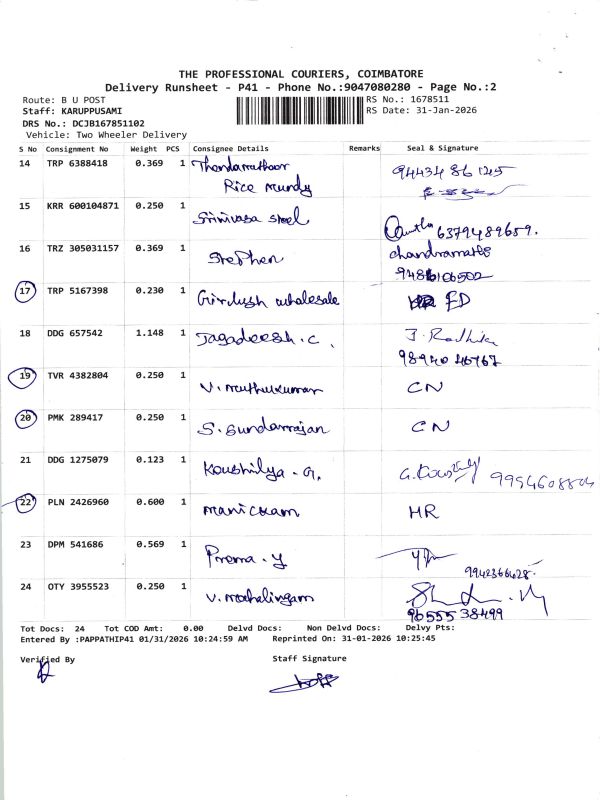 THE PROFESSIONAL COURIERS, COIMBATORE
Delivery Runsheet - P41 - Phone No.:9047080280 - Page No.:2
Route: B U POST RS No.: 1678511
Staff: KARUPPUSAMI RS Date: 31-Jan-2026
DRS No.: DCJB167851102
Vehicle: Two Wheeler Delivery
S No Consignment No Weight PCS Consignee Details Remarks Seal & Signature
14 TRP 6388418 0.369 1 Thondamuthoor 94434 86125
Rice mundy
15 KRR 600104871 0.250 1 Srinivasa steel 6379489659.
16 TRZ 305031157 0.369 1 Stephen chandramathi
17 TRP 5167398 0.230 1 wholesale FD
18 DDG 657542 1.148 1 Jagadeesh.c. J. Radhika
19 TVR 4382804 0.250 1 V. muthukumar CN
20 PMK 289417 0.250 1 S. Sundarrajan CN
21 DDG 1275079 0.123 1 Koushilya.G.
22 PLN 2426960 0.600 1 manickam HR
23 DPM 541686 0.569 1 Prema.y
9942366428.
24 OTY 3955523 0.250 1 V. mahalingam
96555 38499
Tot Docs: 24 Tot COD Amt: 0.00 Delvd Docs: Non Delvd Docs: Delvy Pts:
Entered By :PAPPATHIP41 01/31/2026 10:24:59 AM Reprinted On: 31-01-2026 10:25:45
Verified By Staff Signature